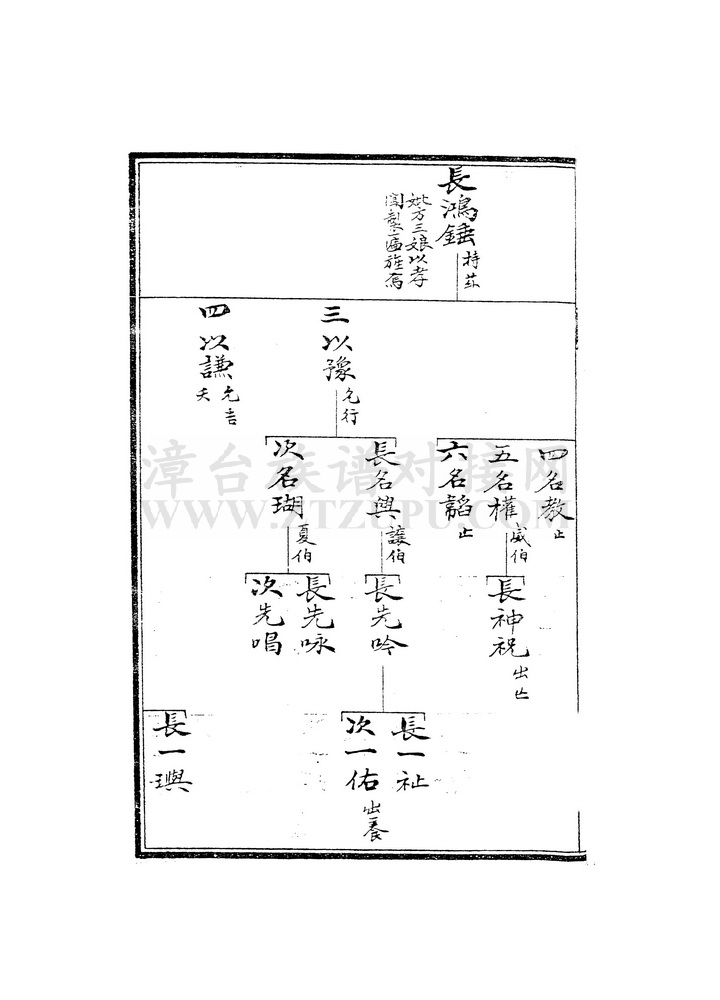 長鴻錘
持茲
妣方三娘以孝
聞製匾旌焉
三以豫
允行
四以謙
允吉
夭
四名教
止
五名權
威伯
六名韜
止
長名與
讓伯
次名瑚
夏伯
長神祝
出亡
長先吟
長先咏
次先唱
長一祉
次一佑
出養
長一璵
漳台族谱对接网
WWW.ZTZUPU.COM